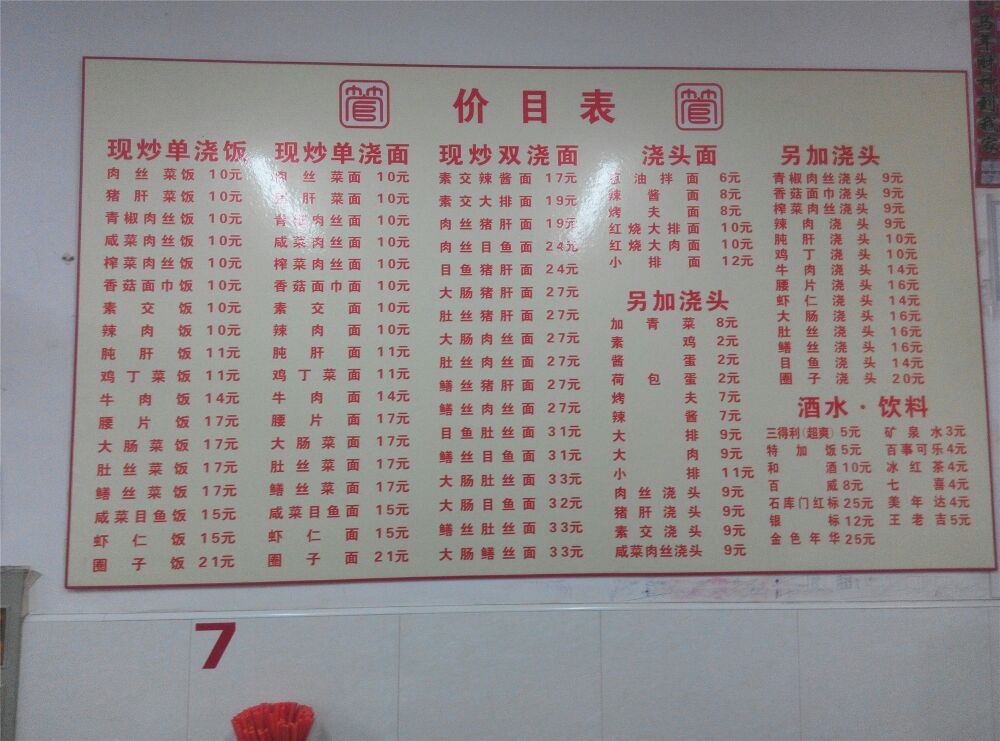 价目表
现炒单浇饭
肉丝菜饭 10元
猪肝菜饭 10元
青椒肉丝饭 10元
咸菜肉丝饭 10元
榨菜肉丝饭 10元
香菇面巾饭 10元
素交饭 10元
辣肉饭 10元
肫肝饭 11元
鸡丁菜饭 11元
牛肉饭 14元
腰片饭 17元
大肠菜饭 17元
肚丝菜饭 17元
鳝丝菜饭 17元
咸菜目鱼饭 15元
虾仁饭 15元
圈子饭 21元
现炒单浇面
肉丝菜面 10元
猪肝菜面 10元
青椒肉丝面 10元
咸菜肉丝面 10元
榨菜肉丝面 10元
香菇面巾面 10元
素交面 10元
辣肉面 10元
肫肝面 11元
鸡丁菜面 11元
牛肉面 14元
腰片面 17元
大肠菜面 17元
肚丝菜面 17元
鳝丝菜面 17元
咸菜目鱼面 15元
虾仁面 15元
圈子面 21元
现炒双浇面
素交辣酱面 17元
素交大排面 19元
肉丝猪肝面 19元
肉丝目鱼面 24元
目鱼猪肝面 24元
大肠猪肝面 27元
肚丝猪肝面 27元
大肠肉丝面 27元
肚丝肉丝面 27元
鳝丝猪肝面 27元
鳝丝肉丝面 27元
目鱼肚丝面 31元
鳝丝目鱼面 31元
大肠肚丝面 33元
大肠目鱼面 32元
鳝丝肚丝面 33元
大肠鳝丝面 33元
浇头面
葱油拌面 6元
辣酱面 8元
烤夫面 8元
红烧大排面 10元
红烧大肉面 10元
小排面 12元
另加浇头
加青菜 8元
素鸡 2元
酱蛋 2元
荷包蛋 2元
烤夫 7元
辣酱 7元
大排 9元
大肉 9元
小排 11元
肉丝浇头 9元
猪肝浇头 9元
素交浇头 9元
咸菜肉丝浇头 9元
另加浇头
青椒肉丝浇头 9元
香菇面巾浇头 9元
榨菜肉丝浇头 9元
辣肉浇头 9元
肫肝浇头 10元
鸡丁浇头 10元
牛肉浇头 14元
腰片浇头 16元
虾仁浇头 14元
大肠浇头 16元
肚丝浇头 16元
鳝丝浇头 16元
目鱼浇头 14元
圈子浇头 20元
酒水·饮料
三得利(超爽) 5元 矿泉水 3元
特加饭 5元 百事可乐 4元
和酒 10元 冰红茶 4元
百威 8元 七喜 4元
石库门红标 25元 美年达 4元
银标 12元 王老吉 5元
金色年华 25元
7